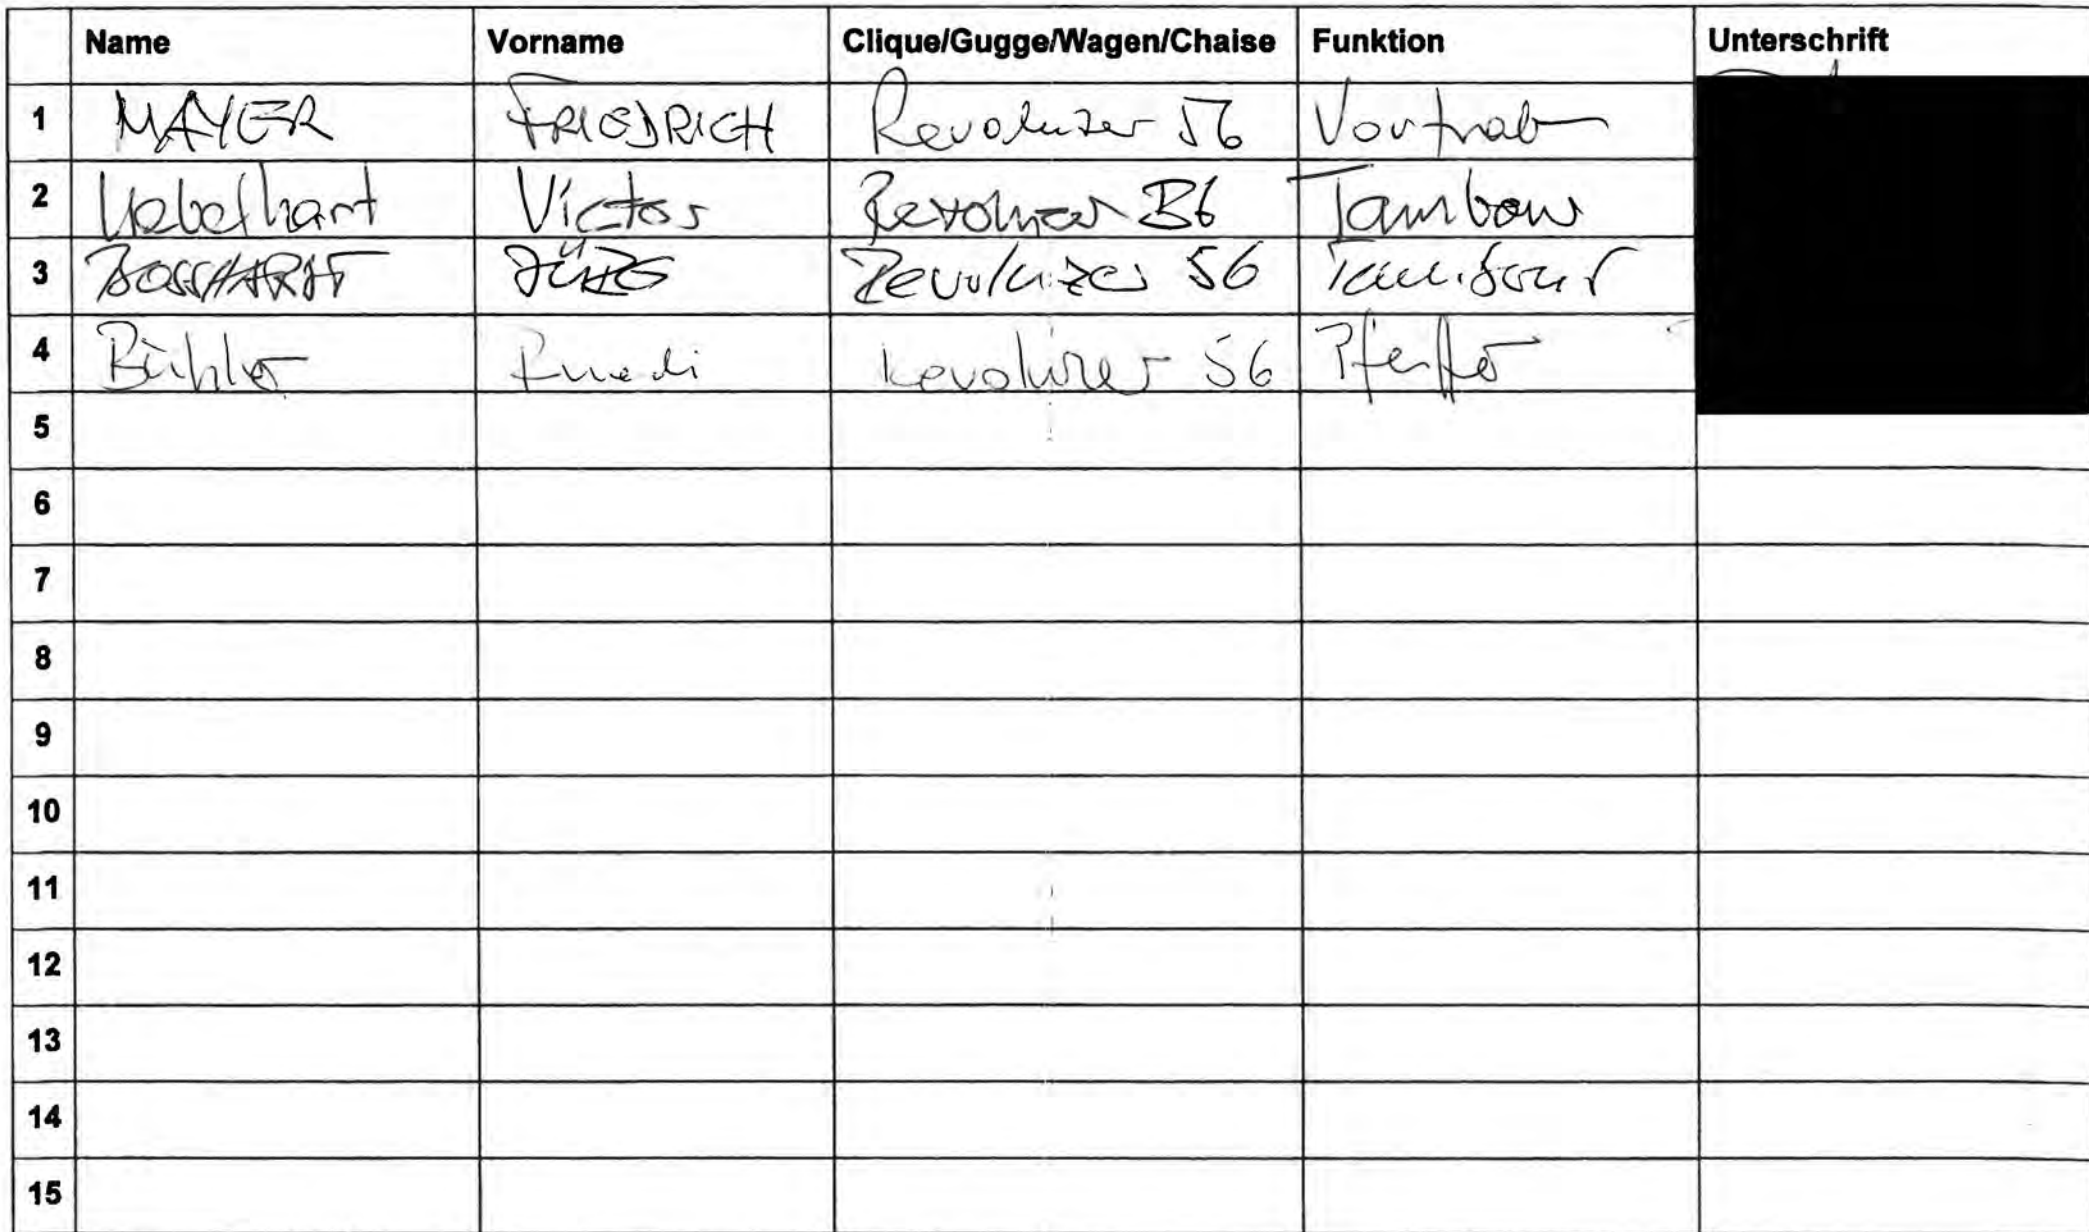 Name Vorname Clique/Gugge/Wagen/Chaise Funktion Unterschrift
1 MAYER FRIEDRICH Revoluzer 56 Vortrab
2 Uebelhart Victor Revoluzer 56 Tambour
3 BOSSHARDT JÜRG Revoluzzer 56 Tambour
4 Bühler Ruedi Revoluzer 56 Pfeiffer
5
6
7
8
9
10
11
12
13
14
15